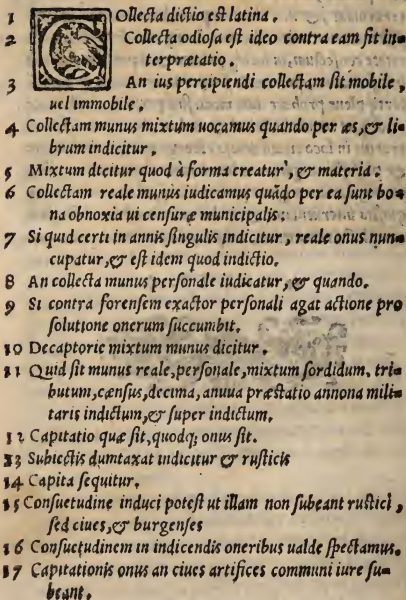 1 COllecta dictio est latina.
2 Collecta odiosa est ideo contra eam fit in⸗
terprætatio.
3 An ius percipiendi collectam sit mobile,
uel immobile.
4 Collectam munus mixtum uocamus quando per æs, & li⸗
brum indicitur.
5 Mixtum dicitur quod à forma creatur, & materia.
6 Collectam reale munus iudicamus quãdo per ea sunt bo⸗
na obnoxia ui censuræ municipalis:
7 Si quid certi in annis singulis indicitur, reale onus nun⸗
cupatur, & est idem quod indictio.
8 An collecta munus personale iudicatur, & quando.
9 Si contra forensem exactor personali agat actione pro
solutione onerum succumbit.
10 Decaptorie mixtum munus dicitur.
11 Quid sit munus reale, personale, mixtum sordidum. tri⸗
butum, cænsus, decima, anuua præstatio annona mili⸗
taris indictum, & super indictum.
12 Capitatio quæ sit, quodq; onus sit.
23 Subiectis dumtaxat indicitur & rusticis
14 Capita sequitur.
15 Consuetudine induci potest ut illam non subeant rustici,
sed ciues, & burgenses
16 Consuetudinem in indicendis oneribus ualde spectamus.
17 Capitationis onus an ciues artifices communi iure su⸗
beant.